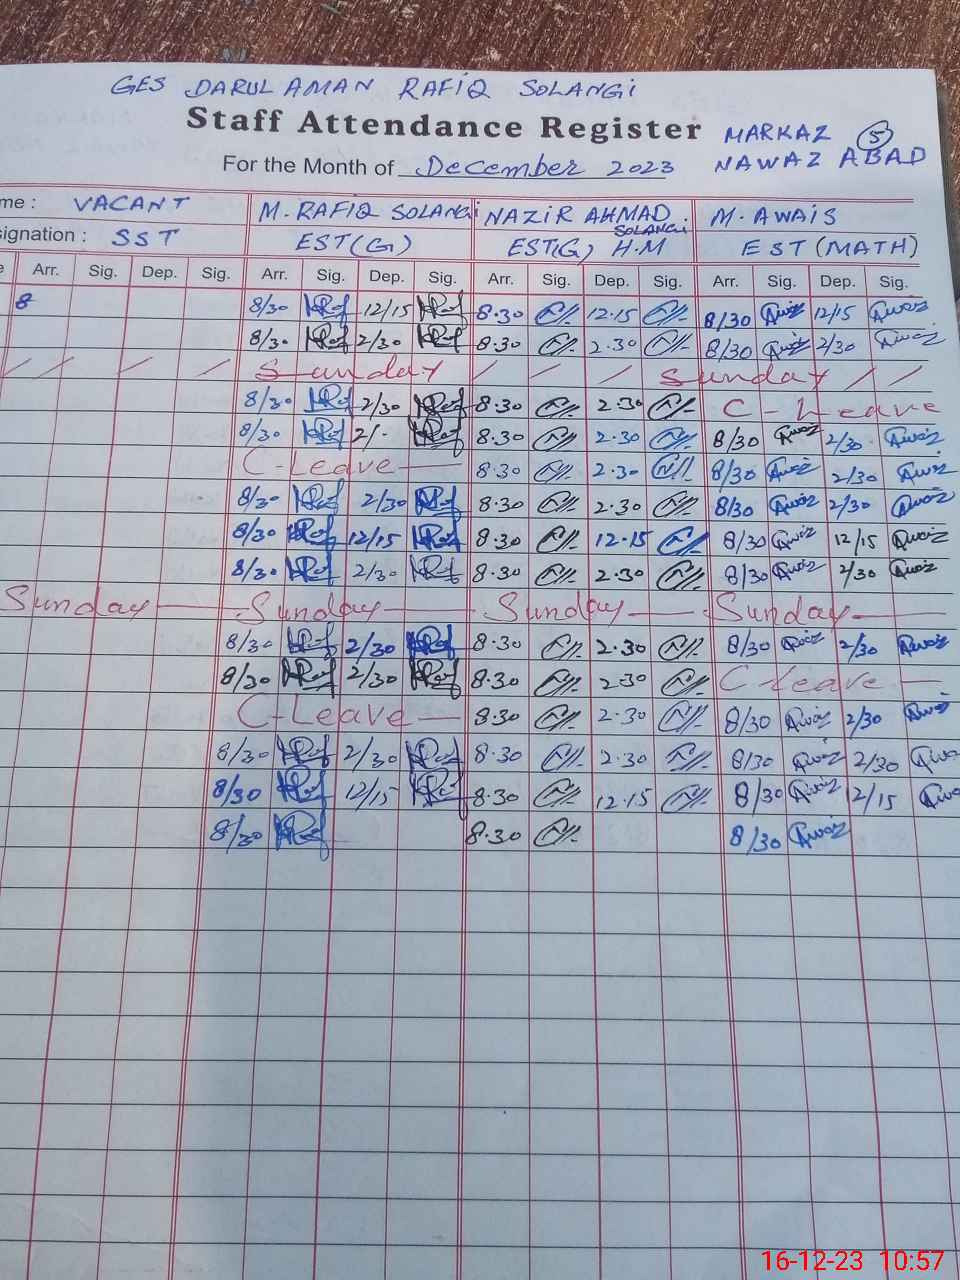 GES DARUL AMAN RAFIQ SOLANGI
Staff Attendance Register MARKAZ 5
For the Month of December 2023 NAWAZ ABAD
me : VACANT M. RAFIQ SOLANGI NAZIR AHMAD SOLANGI M. AWAIS
signation : SST EST(G) EST(G) H.M EST (MATH)
e Arr. Sig. Dep. Sig. Arr. Sig. Dep. Sig. Arr. Sig. Dep. Sig. Arr. Sig. Dep. Sig.
8 8/30 12/15 8.30 12.15 8/30 Awais 12/15 Awais
8/30 2/30 8.30 2.30 8/30 Awais 2/30 Awais
/ / / / Sunday / / / Sunday / /
8/30 2/30 8.30 2.30 C-Leave
8/30 2/- 8.30 2.30 8/30 Awais 2/30 Awais
C-Leave 8.30 2.30 8/30 Awais 2/30 Awais
8/30 2/30 8.30 2.30 8/30 Awais 2/30 Awais
8/30 12/15 8.30 12.15 8/30 Awais 12/15 Awais
8/30 2/30 8.30 2.30 8/30 Awais 2/30 Awais
Sunday Sunday Sunday Sunday
8/30 2/30 8.30 2.30 8/30 Awais 2/30 Awais
8/30 2/30 8.30 2.30 C-Leave
C-Leave 8.30 2.30 8/30 Awais 2/30 Awais
8/30 2/30 8.30 2.30 8/30 Awais 2/30 Awais
8/30 12/15 8.30 12.15 8/30 Awais 12/15 Awais
8/30 8.30 8/30 Awais
16-12-23 10:57